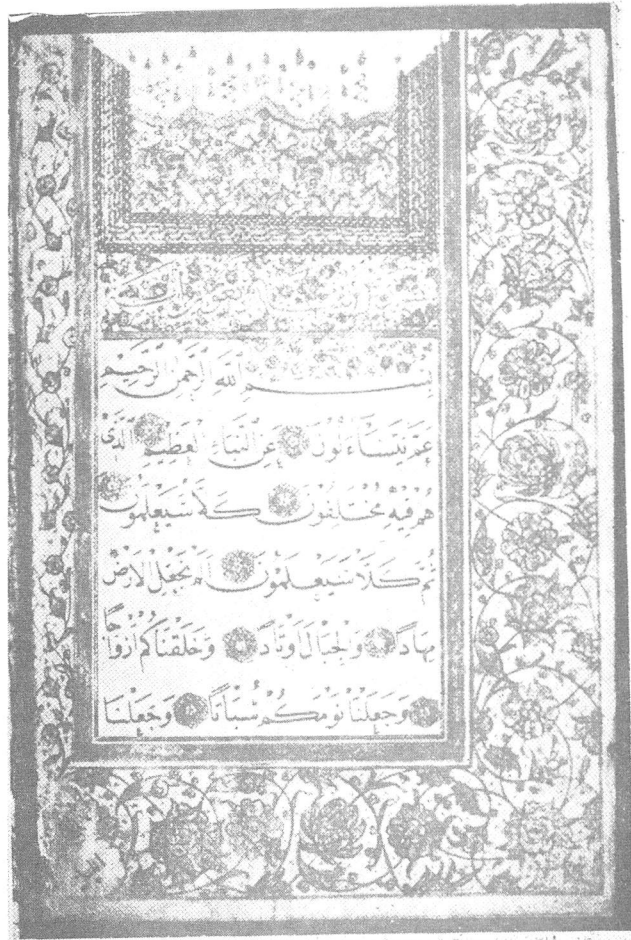 بِسْمِ اللَّهِ الرَّحْمٰنِ الرَّحِيمِ
عَمَّ يَتَسَاءَلُونَ عَنِ النَّبَاءِ الْعَظِيمِ الَّذِى
هُمْ فِيهِ مُخْتَلِفُونَ كَلَّا سَيَعْلَمُونَ
ثُمَّ كَلَّا سَيَعْلَمُونَ اَلَمْ نَجْعَلِ الْاَرْضَ
مِهَادًا وَالْجِبَالَ اَوْتَادًا وَخَلَقْنَاكُمْ اَزْوَاجًا
وَجَعَلْنَا نَوْمَكُمْ سُبَاتًا وَجَعَلْنَا